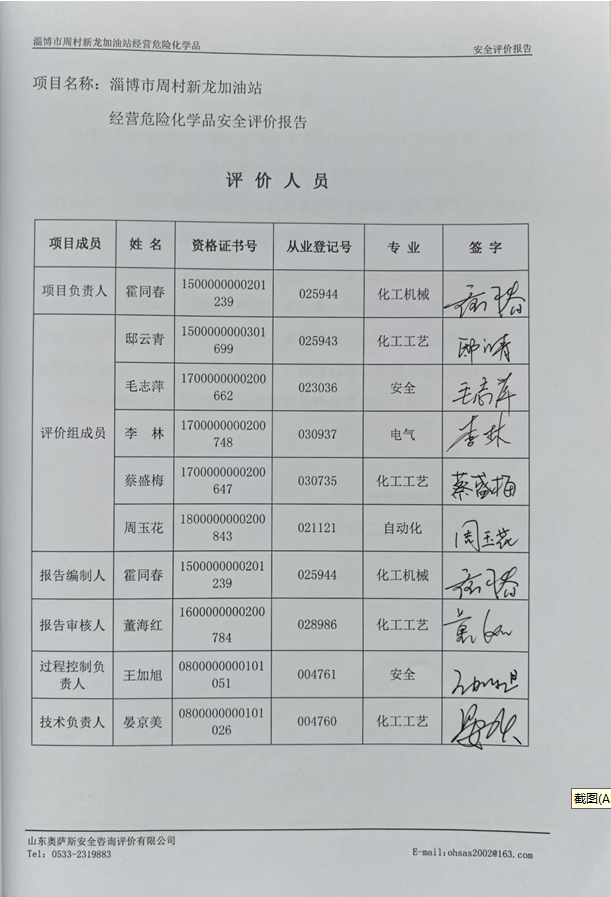 淄博市周村新龙加油站经营危险化学品 安全评价报告
项目名称：淄博市周村新龙加油站
经营危险化学品安全评价报告
评价人员
项目成员 姓名 资格证书号 从业登记号 专业 签字
项目负责人 霍同春 1500000000201239 025944 化工机械
评价组成员 邸云青 1500000000301699 025943 化工工艺 邸云青
毛志萍 1700000000200662 023036 安全 毛志萍
李林 1700000000200748 030937 电气 李林
蔡盛梅 1700000000200647 030735 化工工艺 蔡盛梅
周玉花 1800000000200843 021121 自动化 周玉花
报告编制人 霍同春 1500000000201239 025944 化工机械
报告审核人 董海红 1600000000200784 028986 化工工艺
过程控制负责人 王加旭 0800000000101051 004761 安全
技术负责人 晏京美 0800000000101026 004760 化工工艺
山东奥萨斯安全咨询评价有限公司
Tel：0533-2319883 E-mail:ohsas2002@163.com
截图(A